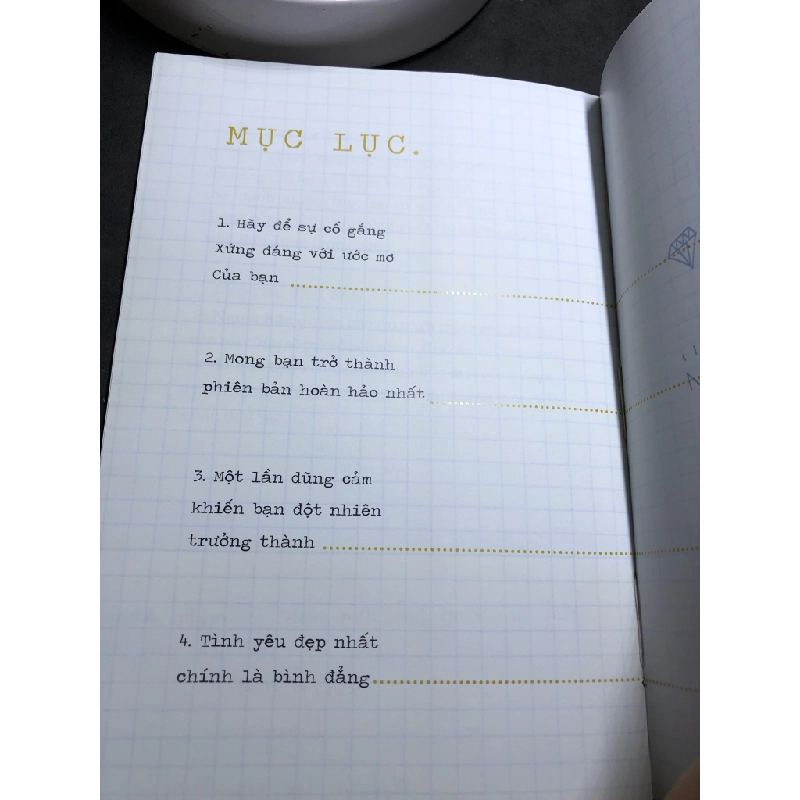 MỤC LỤC.
1. Hãy để sự cố gắng
Xứng đáng với ước mơ
Của bạn
2. Mong bạn trở thành
phiên bản hoàn hảo nhất
3. Một lần dũng cảm
khiến bạn đột nhiên
trưởng thành
4. Tình yêu đẹp nhất
chính là bình đẳng